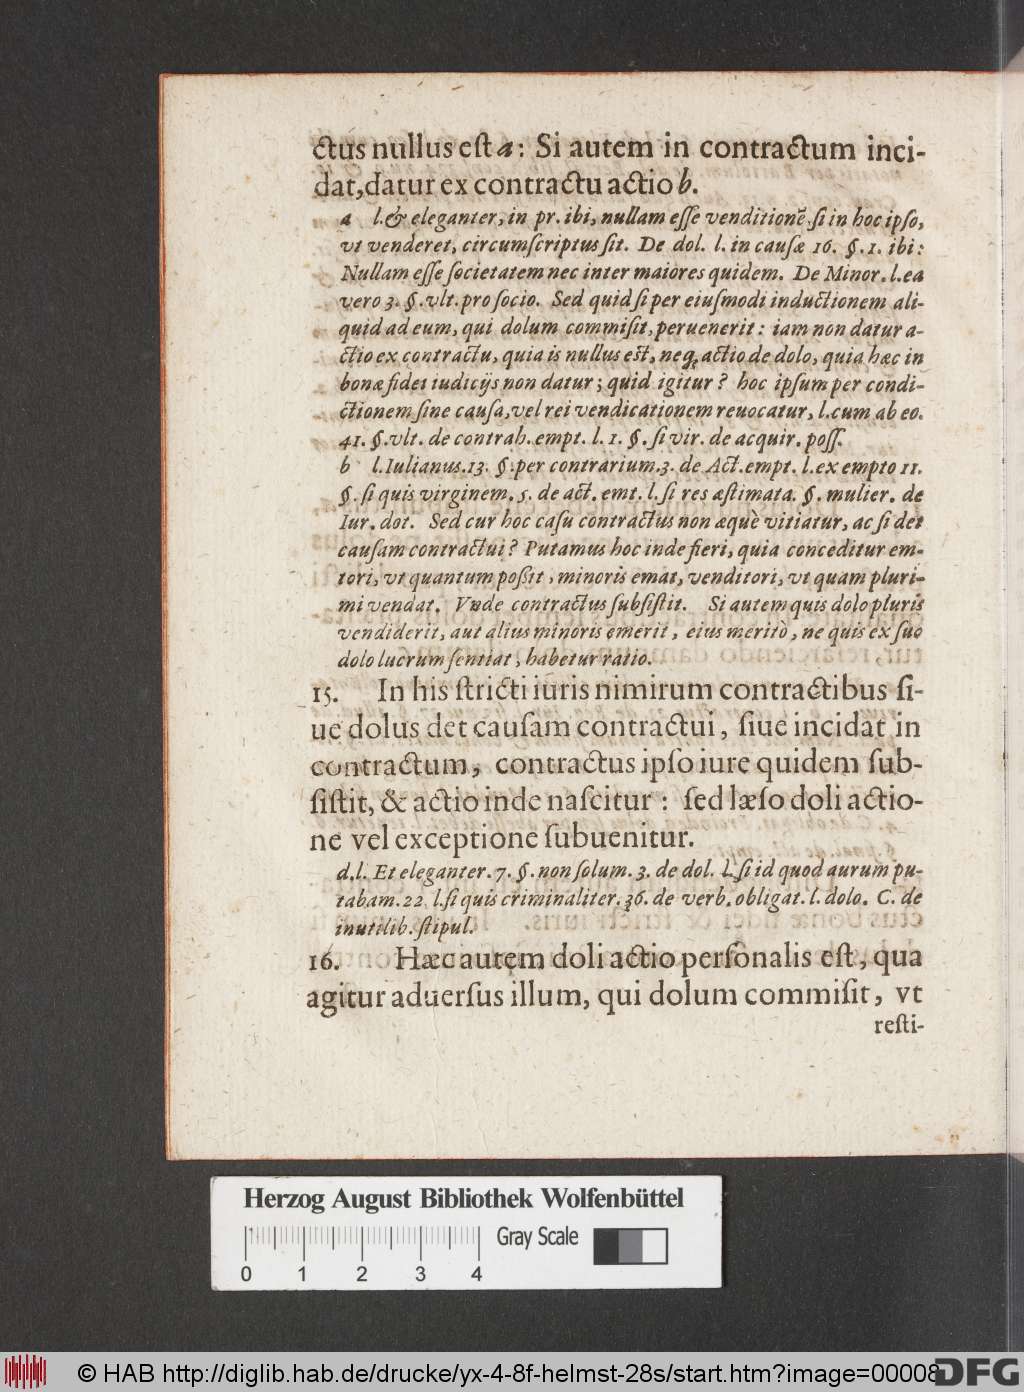 ctus nullus est a: Si autem in contractum inci-
dat, datur ex contractu actio b.
a l. & eleganter, in pr. ibi, nullam esse venditionē, si in hoc ipso,
vt venderet, circumscriptus sit. De dol. l. in causæ 16. §. 1. ibi:
Nullam esse societatem nec inter maiores quidem. De Minor. l. ea
vero 3. §. vlt. pro socio. Sed quid si per eiusmodi inductionem ali-
quid ad eum, qui dolum commisit, peruenerit: iam non datur a-
ctio ex contractu, quia is nullus est, neq; actio de dolo, quia hæc in
bonæ fidei iudicijs non datur; quid igitur? hoc ipsum per condi-
ctionem sine causa, vel rei vendicationem reuocatur, l. cum ab eo.
41. §. vlt. de contrah. empt. l. 1. §. si vir. de acquir. poss.
b l. Iulianus. 13. §. per contrarium. 3. de Act. empt. l. ex empto 11.
§. si quis virginem. 5. de act. emt. l. si res æstimata. §. mulier. de
Iur. dot. Sed cur hoc casu contractus non æquè vitiatur, ac si det
causam contractui? Putamus hoc inde fieri, quia conceditur em-
tori, vt quantum possit, minoris emat, venditori, vt quam pluri-
mi vendat. Vnde contractus subsistit. Si autem quis dolo pluris
vendiderit, aut alius minoris emerit, eius meritò, ne quis ex suo
dolo lucrum sentiat, habetur ratio.
15. In his stricti iuris nimirum contractibus si-
ue dolus det causam contractui, siue incidat in
contractum, contractus ipso iure quidem sub-
sistit, & actio inde nascitur: sed læso doli actio-
ne vel exceptione subuenitur.
d. l. Et eleganter. 7. §. non solum. 3. de dol. l. si id quod aurum pu-
tabam. 22. l. si quis criminaliter. 36. de verb. obligat. l. dolo. C. de
inutilib. stipul.
16. Hæc autem doli actio personalis est, qua
agitur aduersus illum, qui dolum commisit, vt
resti-
Herzog August Bibliothek Wolfenbüttel
Gray Scale
0 1 2 3 4
© HAB http://diglib.hab.de/drucke/yx-4-8f-helmst-28s/start.htm?image=00008
DFG